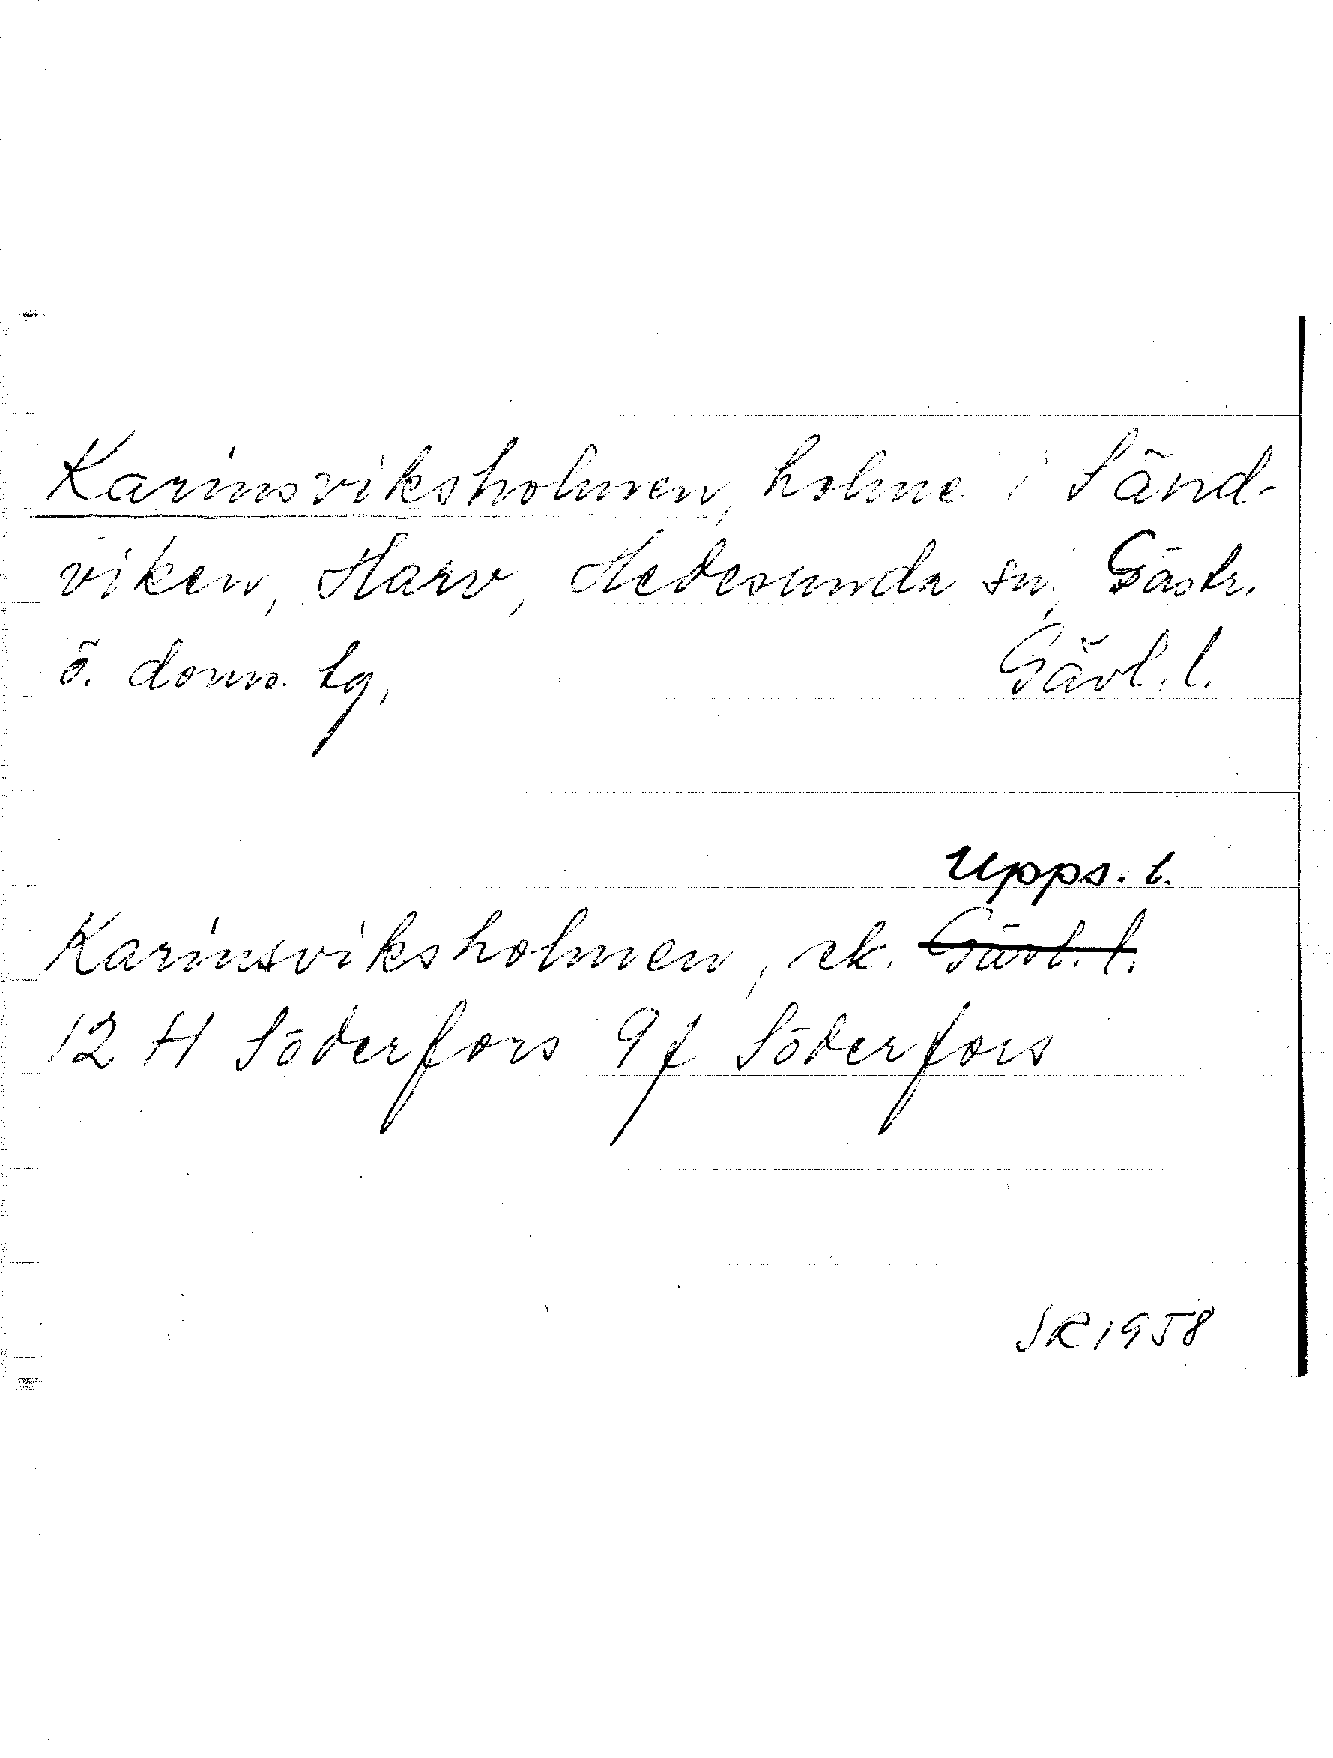 Karinsviksholmen, holme i Sänd-
viken, Harv, Hedesunda sn, Gästr.
ö. doms. tg, Gävl. l.
Upps. l.
Karinsviksholmen, ek. Gävl. l.
12 H Söderfors 9f Söderfors
SR 1958